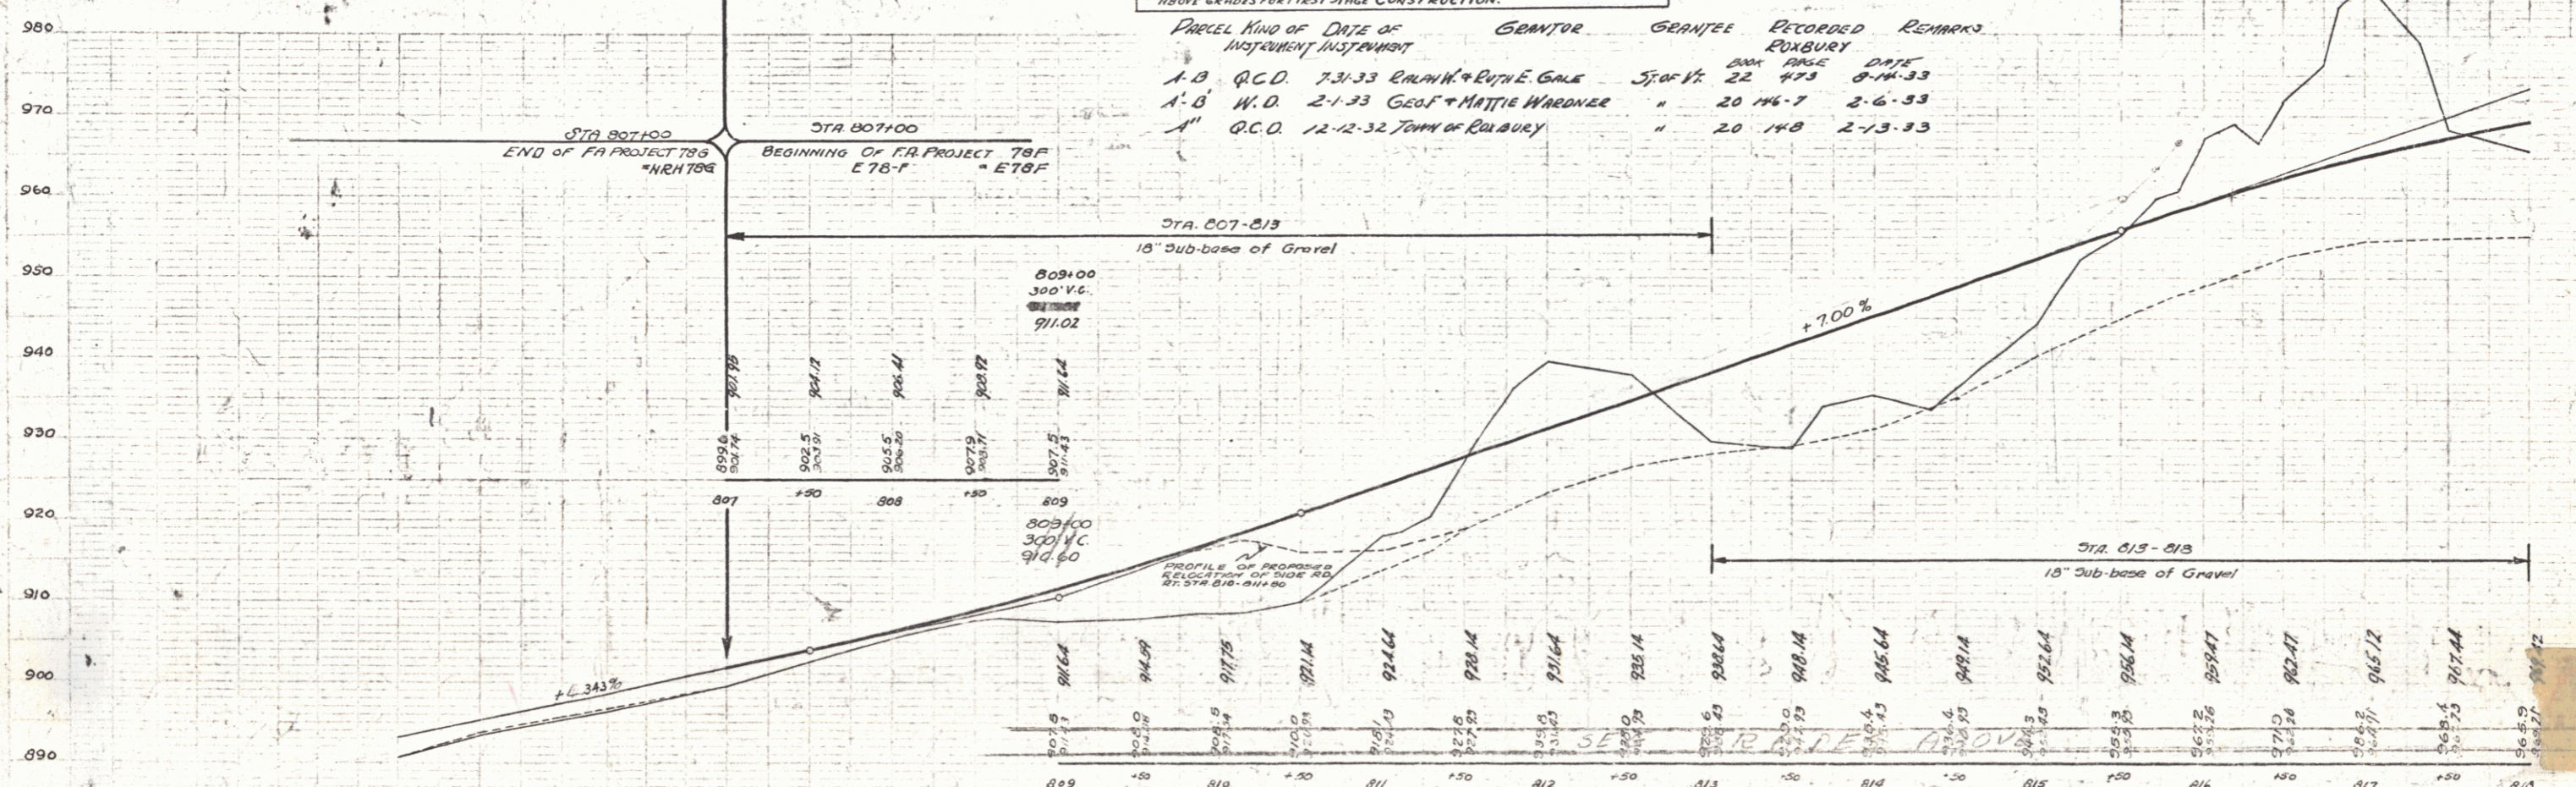 ABOVE GRADES FOR FIRST STAGE CONSTRUCTION.
PARCEL KIND OF INSTRUMENT DATE OF INSTRUMENT GRANTOR GRANTEE RECORDED ROXBURY REMARKS
BOOK PAGE DATE
A-B Q.C.D. 7-31-33 RALPH W. & RUTH E. GALE ST. OF VT. 22 473 8-14-33
A'-B' W.D. 2-1-33 GEO. F & MATTIE WARDNER " 20 146-7 2-6-33
A" Q.C.D. 12-12-32 TOWN OF ROXBURY " 20 148 2-13-33
980
970
960
950
940
930
920
910
900
890
STA 807+00
END OF FA PROJECT 78G
=NRH 78G
STA. 807+00
BEGINNING OF F.A. PROJECT 78F
E 78-F = E78F
STA. 807-813
18" Sub-base of Gravel
809+00
300' V.C.
911.02
901.95 904.12 906.41 908.92 911.64
899.6 902.5 905.5 907.9 907.5
901.74 903.91 906.20 908.71 911.43
807 +50 808 +50 809
809+00
300' V.C.
910.60
+7.00%
PROFILE OF PROPOSED
RELOCATION OF SIDE RD.
AT. STA. 810-811+80
STA. 813-818
18" Sub-base of Gravel
911.64 914.59 917.75 921.14 924.64 928.14 931.64 935.14 938.64 948.14 945.64 949.14 952.64 956.14 959.47 962.47 965.12 967.44
908.0 908.5 910.0 918.1 927.8 939.8 955.3 967.2 971.9 986.2 968.4 965.9
809 +50 810 +50 811 +50 812 +50 813 +50 814 +50 815 +50 816 +50 817 +50 818